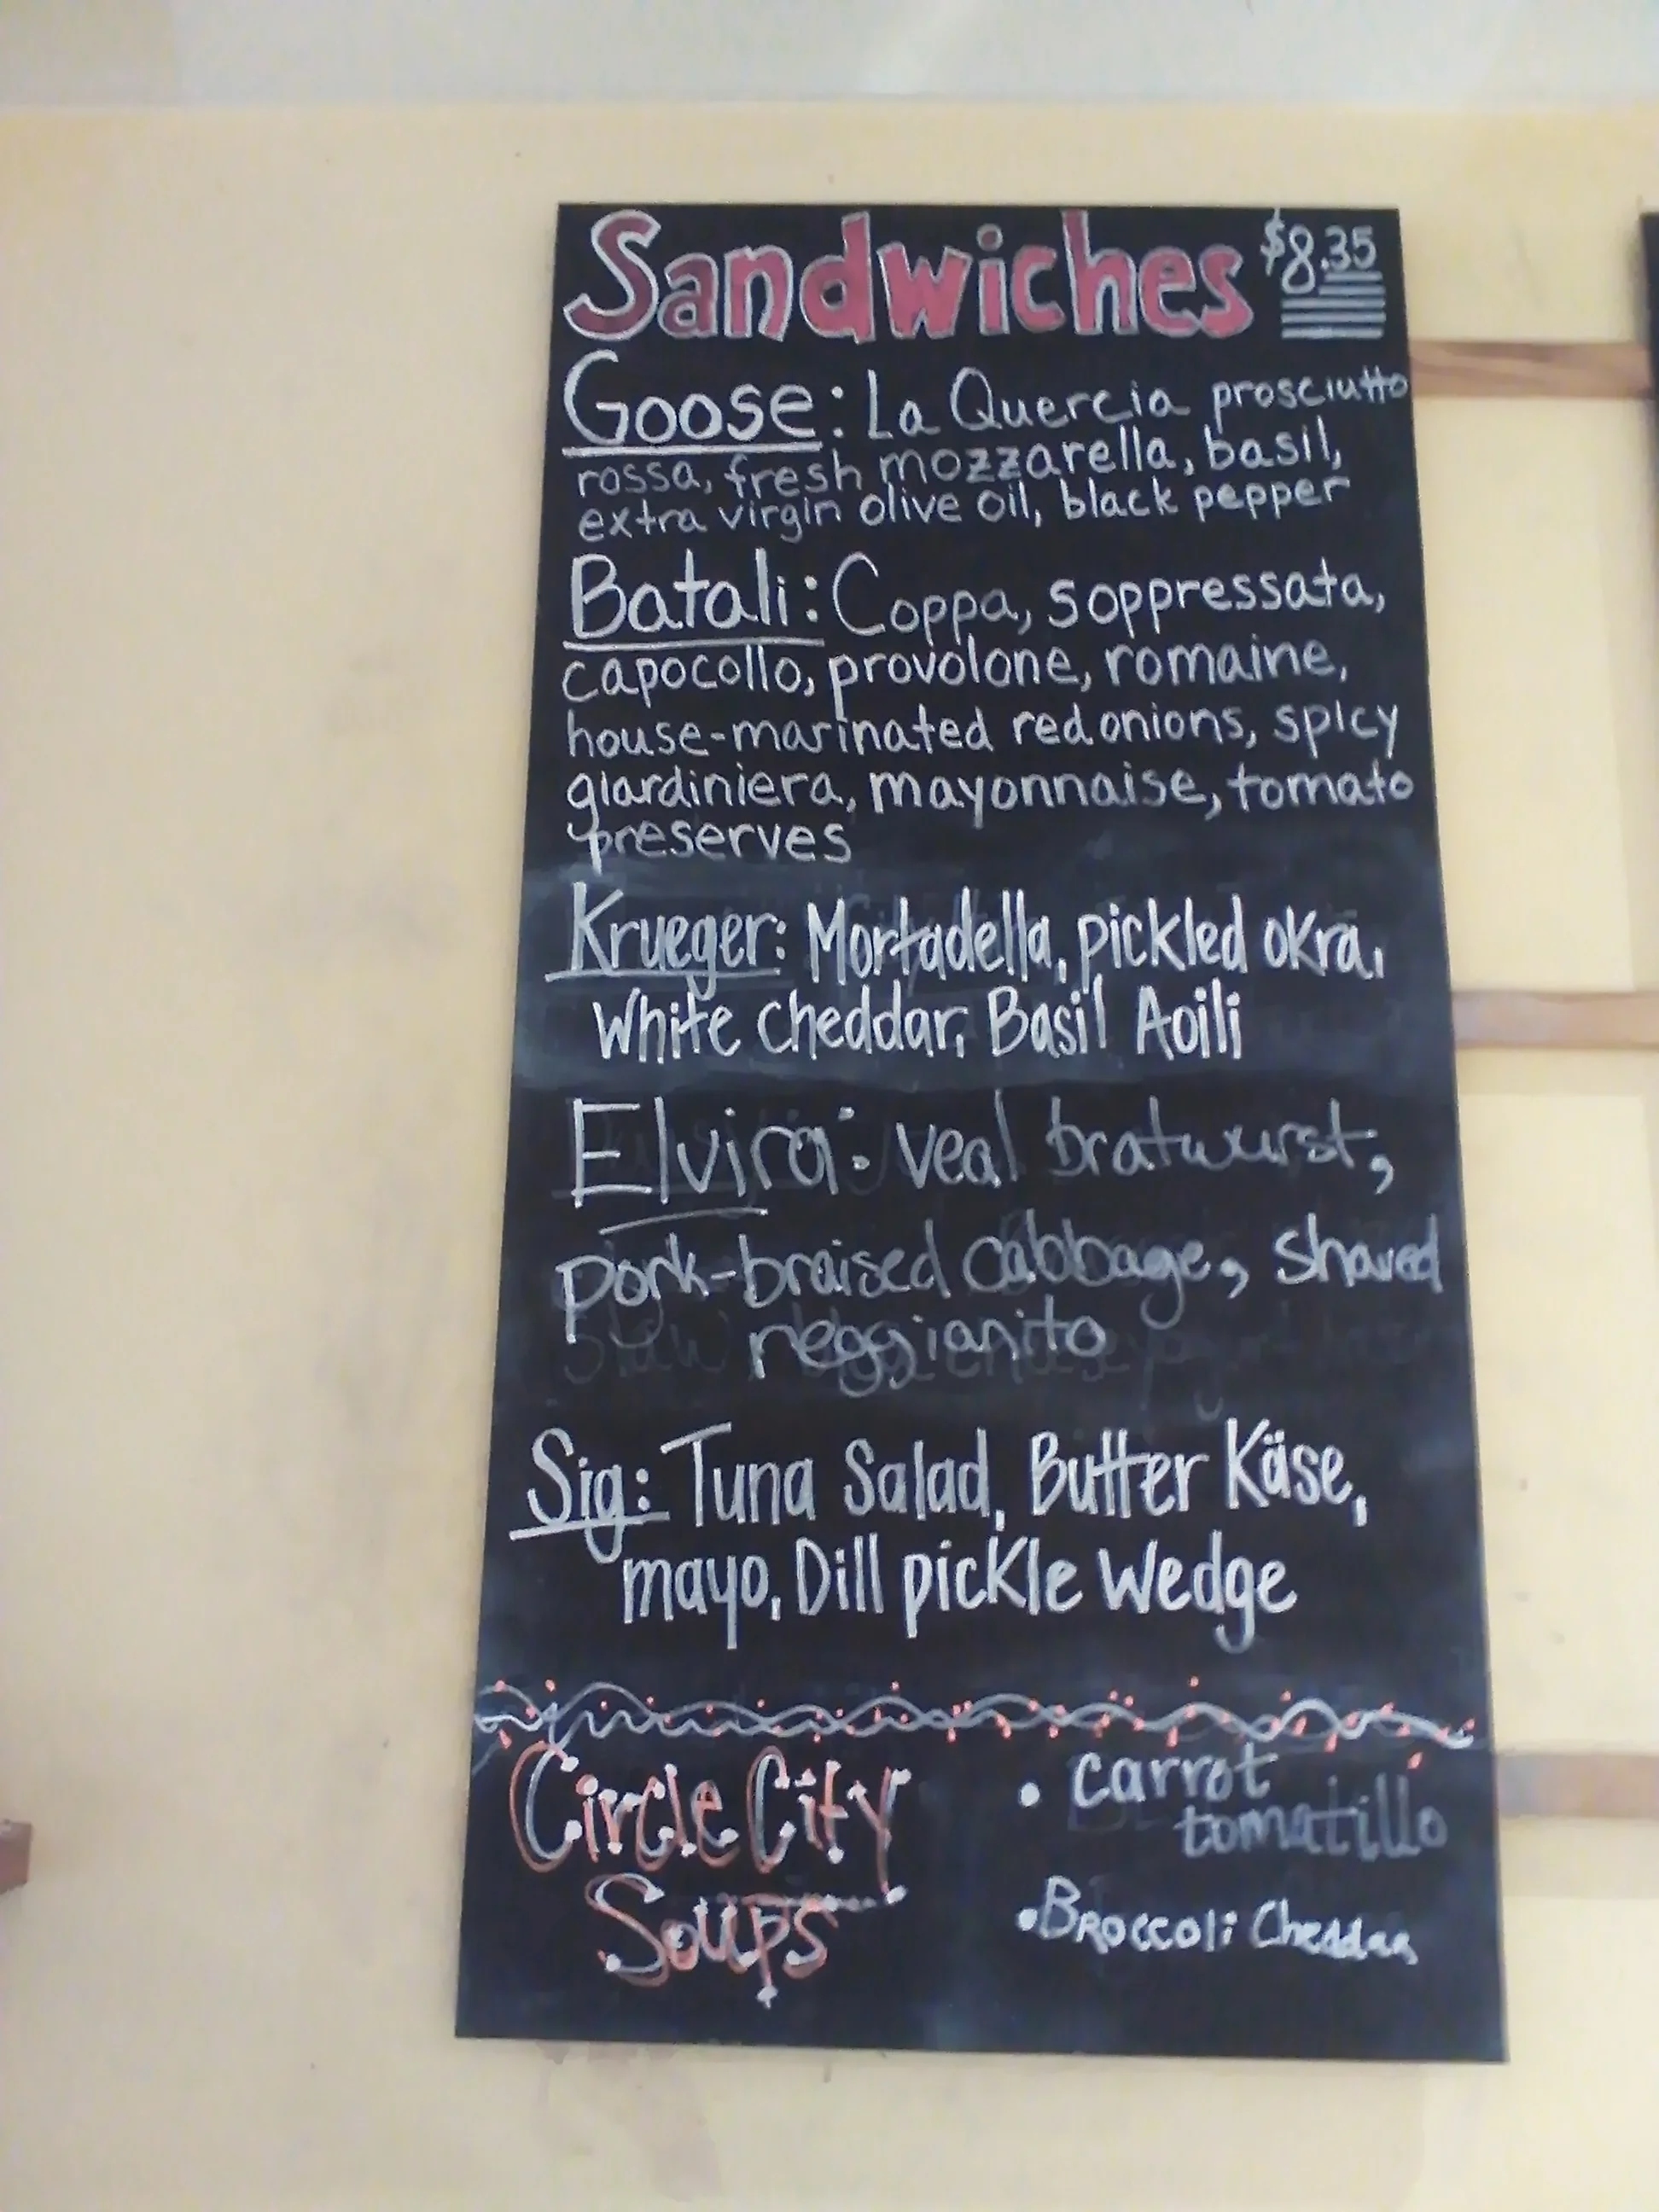 Sandwiches $8.35
Goose: La Quercia prosciutto
rossa, fresh mozzarella, basil,
extra virgin olive oil, black pepper
Batali: Coppa, soppressata,
capocollo, provolone, romaine,
house-marinated red onions, spicy
giardiniera, mayonnaise, tomato
preserves
Krueger: Mortadella, pickled okra,
White Cheddar, Basil Aoili
Elvira: veal bratwurst,
pork-braised cabbage, shaved
reggianito
Sig: Tuna Salad, Butter Käse,
mayo, Dill pickle Wedge
Circle City
Soups
• carrot
tomatillo
• Broccoli Cheddar